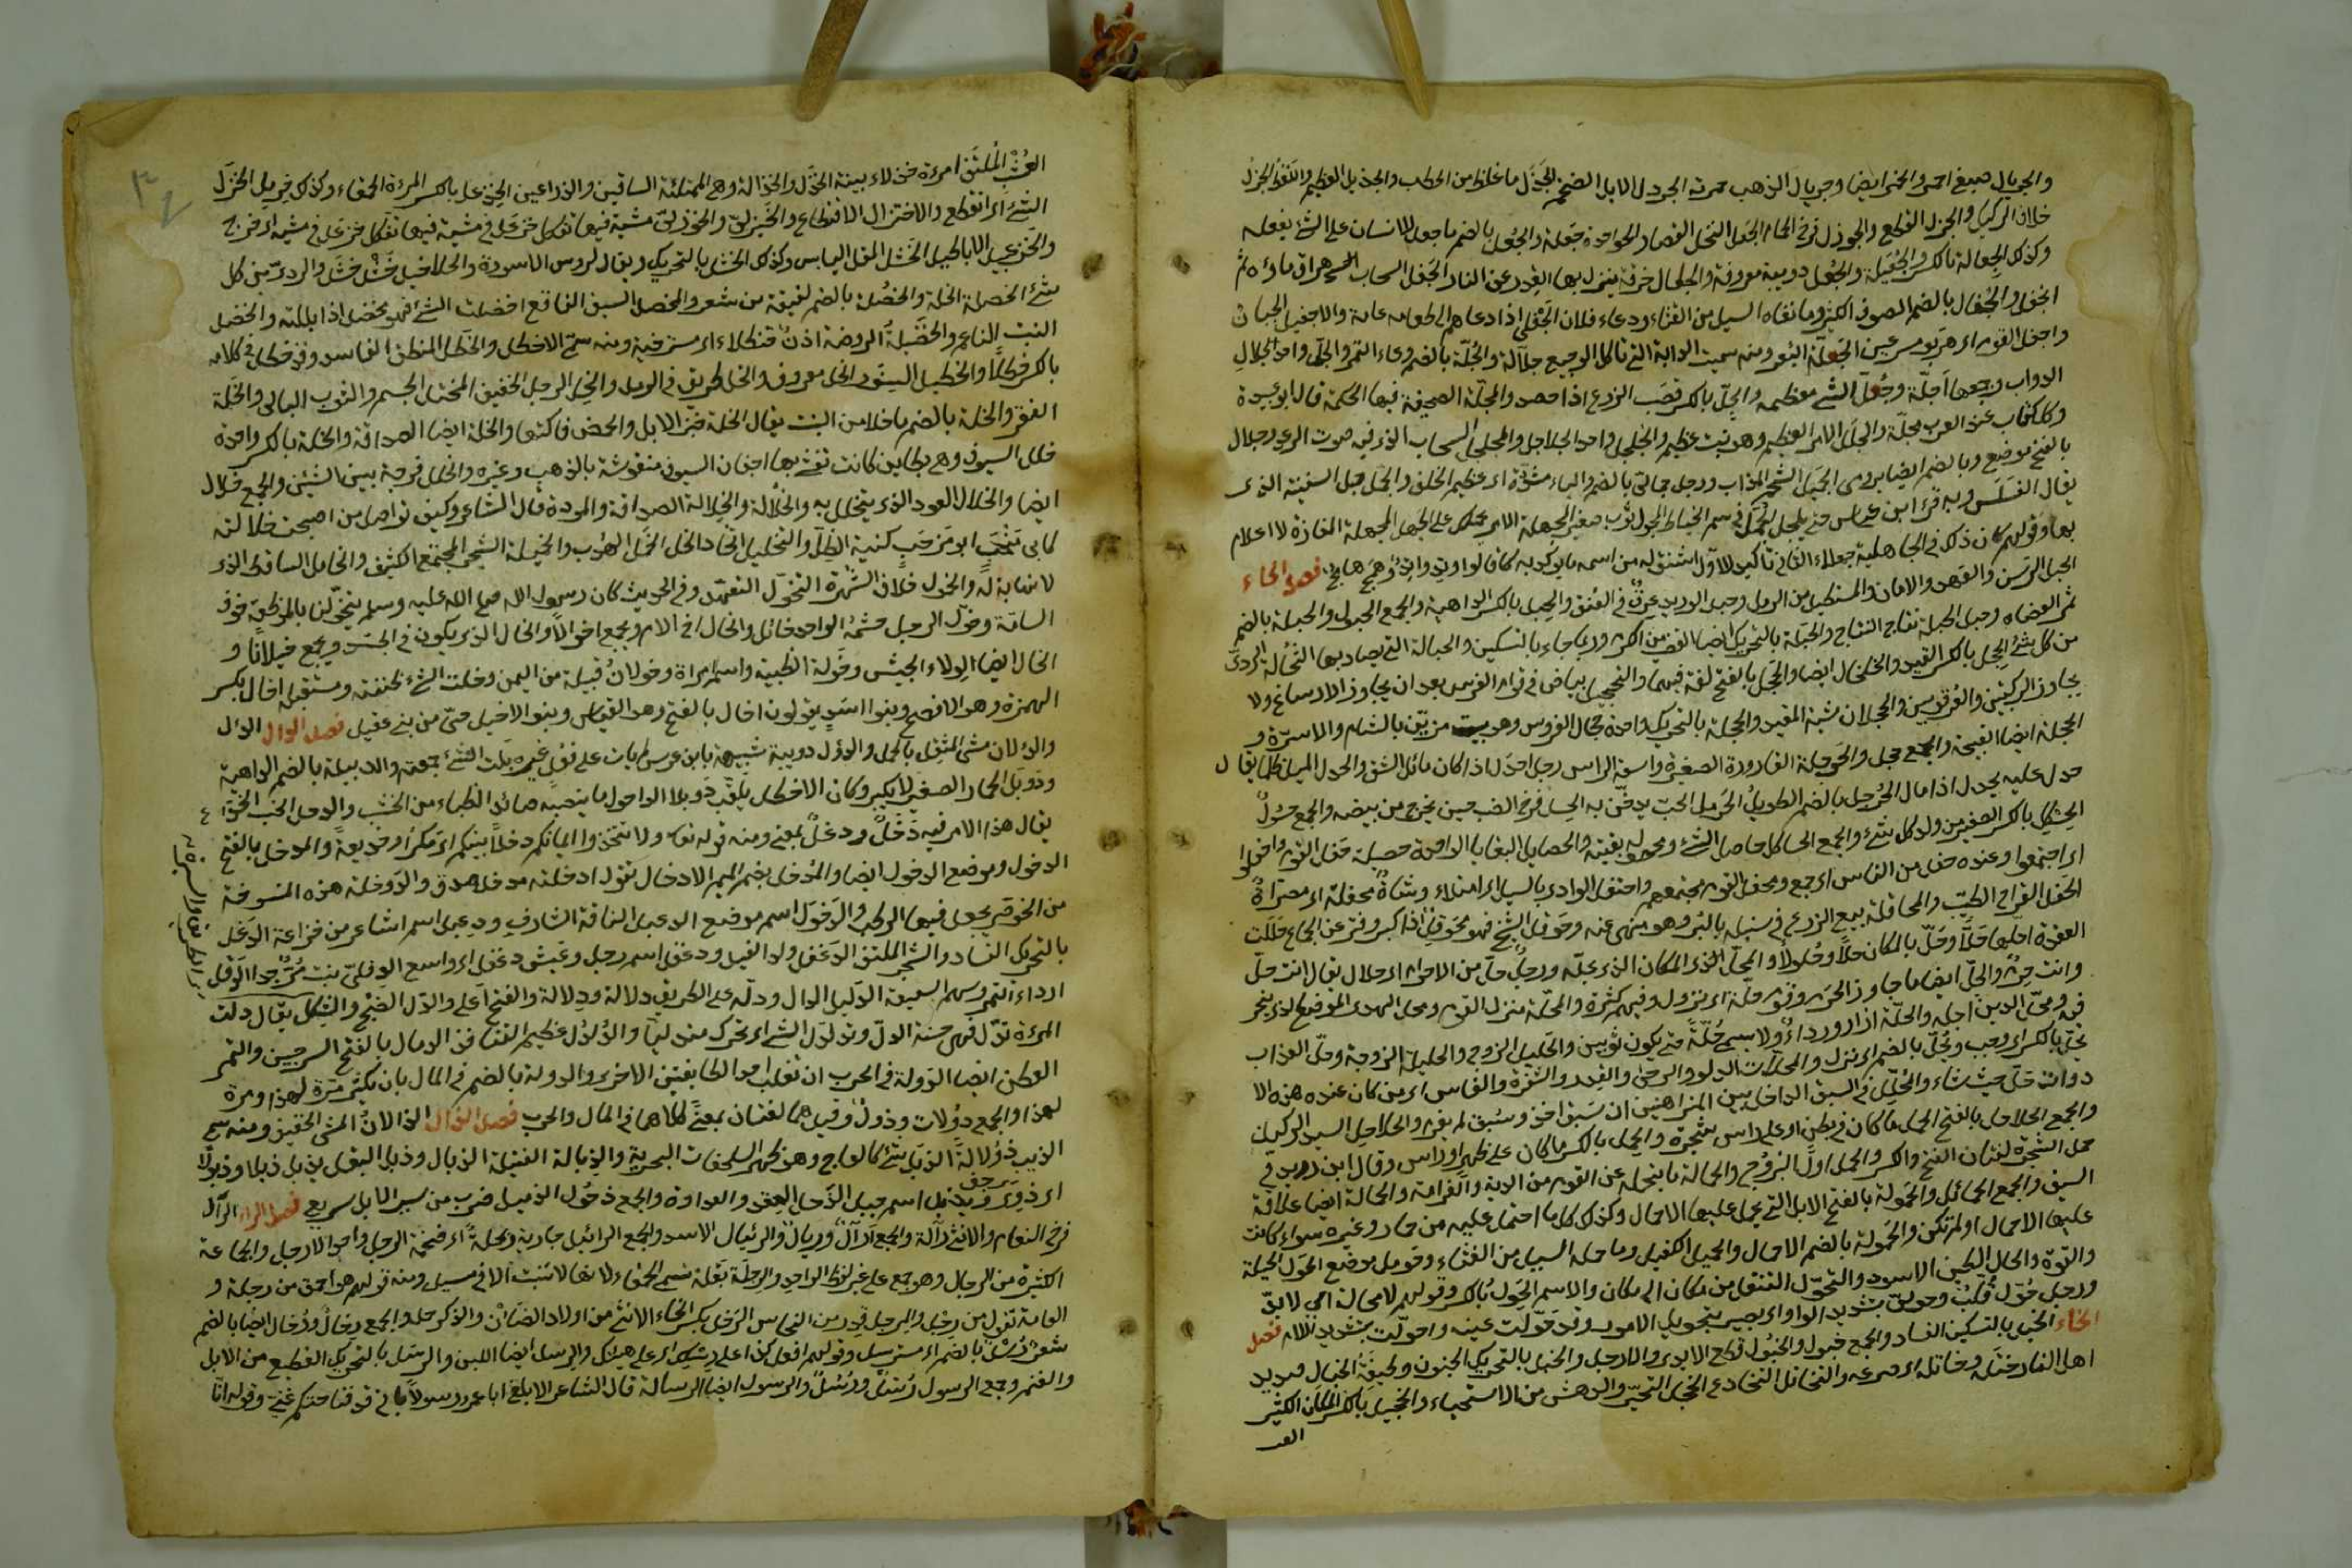 والجريال صبيغ احمر والخمر ايضا وجريال الذهب حمرته الجردل الابل الضخم الجذل ما غلظ من الحطب والجذيل العظيم
خلاف الركيك والجزل القطع والجوزل فرخ الحمام الجعل النخل القصار الواحدة جعلة والجعل بالضم ما جعل للانسان على الشئ يفعله
وكذلك الجعالة بالكسر والجعيلة والجعل دويبة معروفة والجعال خرقة ينزل بها القدر عن النار الجفل السحاب الذي هراق ماؤه ثم
انجفل والجفال بالضم الصوف الكثير وما نفاه السيل من الغثاء ودعاء فلان الجفلى اذا دعاهم الى طعامه عامة والاجفيل الجبان
واجفل القوم اي هربوا مسرعين الجلة البعر ومنه سميت الدابة التي تاكل الرجيع جلالة والجلة بالضم وعاء التمر والجل واحد الجلال
الدواب وجمعها اجلة وجل الشئ معظمه والجل بالكسر قصب الزرع اذا حصد والمجلة الصحيفة فيها الحكمة قال ابو عبيدة
وكل كتاب عند العرب مجلة والجلل الامر العظيم وهو نبت عظيم والجلجل واحد الجلاجل والمجلجل السحاب الذي فيه صوت الرعد وجلال
بالفتح موضع وبالضم ايضا الجميل الشحم المذاب ورجل جمالى بالضم والياء مشددة اي عظيم الخلق والجمل حبل السفينة الذي
يقال القلس وبه قرأ ابن عباس حتى يلج الجمل في سم الخياط المجول ثوب صغير المجهلة الامر يحملك على الجهل المجهلة المفازة لا اعلام
بها وقولهم كان ذلك في الجاهلية جهلاء الثاني تاكيد للاول اشتق له من اسمه ما يوكد به كما قالوا وتد واتد وهمج هامج فصل الحاء
الحبل الرسن والعهد والامان والمستطيل من الرمل وحبل الوريد عرق في العنق والحبل بالكسر الداهية والجمع الحبول والحبلة بالضم
ثمر العضاه وحبل الحبلة نتاج النتاج والحبلة بالتحريك ايضا القضيب من الكرم وربما جاء بالتسكين والحبالة التي يصاد بها الحثالة الردي
من كل شئ الحجل بالكسر القيد والخلخال ايضا والحجل بالفتح لغة فيهما والتحجيل بياض في قوائم الفرس بعد ان يجاوز الارساغ ولا
يجاوز الركبتين والعرقوبين والحجلان مشية المقيد والحجلة بالتحريك واحدة حجال العروس وهو بيت مزين بالثياب والاسرة و
الحجلة ايضا القبجة والجمع حجل والحوجلة القارورة الصغيرة واسعة الراس رجل احدل اذا كان مائل الشق والحدل الميل يقال
حدل عليه يحدل اذا مال الحرجل بالضم الطويل الحرمل الحب يدخن به الحسل فرخ الضب حين يخرج من بيضه والجمع حسول
الحسكل بالكسر الصغير من ولد كل شئ والجمع الحساكل حاصل الشئ ومحصوله بقيته والحصايل البقايا الواحدة حصيلة حفل القوم واحتفلوا
اي اجتمعوا وعنده حفل من الناس اي جمع ومحفل القوم مجتمعهم واحتفل الوادي بالسيل اي امتلاء وشاة محفلة اي مصراة
الحقل القراح الطيب والمحاقلة بيع الزرع في سنبله بالبر وهو منهى عنه وحوقل الشيخ فهو محوقل اذا كبر وفتر عن الجماع حللت
العقدة احلها حلا وحل بالمكان حلا وحلولا والمحل المكان الذي يحله ورجل حل من الاحرام اي حلال يقال انت حل
وانت حرم والحل ايضا ما جاوز الحرم وقوم حلة اي نزول وفيهم كثرة والمحلة منزل القوم ومحل الهدى الموضع الذي ينحر
فيه ومحل الدين اجله والحلة ازار ورداء ولا يسمى حلة حتى يكون ثوبين والحليل الزوج والحليلة الزوجة وحل العذاب
يحل بالكسر اي وجب ويحل بالضم اي نزل والمحلات الدلو والرحى والقدر والشفرة والفاس اي من كان عنده هذه الا
دوات حل حيث شاء والمحلل في السبق الداخل بين المتراهنين ان سبق اخذ وسبق لم يغرم والحلاحل السيد الركين
والجمع الحلاحل بالفتح الحمل ما كان في بطن او على راس شجرة والحمل بالكسر ما كان على ظهر او راس وقال ابن دريد في
حمل الشجرة لغتان الفتح والكسر والحمل اول البروج والحمالة ما يتحمله عن القوم من الدية والغرامة والحمالة ايضا علاقة
السيف والجمع الحمائل والحمولة بالفتح الابل التي يحمل عليها الاحمال وكذلك كل ما احتمل عليه من حمار وغيره سواء كانت
عليها الاحمال او لم تكن والحمولة بالضم الاحمال والحميل الكفيل وما حمله السيل من الغثاء وحومل موضع الحول الحيلة
والقوة والحال الطين الاسود والتحول التنقل من مكان الى مكان والاسم الحول بالكسر وقولهم لا محالة اي لا بد
ورجل حول قلب وحولى بتشديد الواو اي بصير بتحويل الامور وقد حولت عينه واحولت بتشديد اللام فصل
الخاء الخبل بالتسكين الفساد والجمع خبول والخبول قطع الايدى والارجل والخبل بالتحريك الجنون وطينة الخبال صديد
اهل النار ختله وخاتله اي خدعه والتخاتل التخادع الخجل التحير والدهش من الاستحياء والخجيل بالكسر المكان الكثير
العشب
٣٤
العشب الملتف امرءة خدلاء بينة الخدل والخدالة وهي الممتلئة الساقين والذراعين الخذعل بالكسر المرءة الحمقاء وكذلك خرمل انخزل
الشئ اي انقطع والاختزال الاقتطاع والخيزلى والخوزلى مشية فيها تفكك خزعل في مشيه اي خرج
والخزعبيل الاباطيل الخشل المقل اليابس وكذلك الخشل بالتحريك ويقال لرؤس الاسورة والخلاخيل خشل وخشل والردى من كل
شئ الخصلة الخلة والخصلة بالضم لفيفة من شعر والمخصل السيف القاطع اخضلت الشئ فهو مخضل اذا بللته والخضل
النبت الناعم والخضيلة الروضة اذن خطلاء اي مسترخية ومنه سمى الاخطل والخطل المنطق الفاسد وقد خطل في كلامه
بالكسر خطلا والخيطل السنور الخل معروف والخل طريق في الرمل والخل الرجل الخفيف المختل الجسم والثوب البالى والخلة
الفقر والخلة بالضم ما خلا من النبت يقال الخلة خبز الابل والحمض فاكهتها والخلة ايضا الصداقة والخلة بالكسر واحدة
خلل السيوف وهي بطاين كانت تغشى بها اجفان السيوف منقوشة بالذهب وغيره والخلل فرجة بين الشيئين والجمع خلال
ايضا والخلال العود الذي يتخلل به والخلالة والخلالة الصداقة والمودة قال الشاعر وكيف تواصل من اصبحت خلالته
كابى مرحب ابو مرحب كنية الظل والتخليل اتخاد الخل الخمل الهدب والخميلة الشجر المجتمع الكثيف والخامل الساقط الذي
لا نباهة له والخمول خلاف الشهرة التخول التعهد وفي الحديث كان رسول الله صلى الله عليه وسلم يتخولنا بالموعظة خوف
السامة وخول الرجل حشمه الواحد خائل والخال اخ الام ويجمع اخوالا والخال الذي يكون في الجسد ويجمع خيلانا و
الخال ايضا لواء الجيش وخولة الظبية واسم امراة وخولان قبيلة من اليمن وخلت الشئ ظننته ومستقبله اخال بكسر
الهمزة وهو الافصح وبنوا اسد يقولون اخال بالفتح وهو القياس وبنو الاخيل حى من بنى عقيل فصل الدال الدأل
والدألان مشى المثقل بالحمل والدؤل دويبة شبيهة بابن عرس دبلت الشئ جمعته والدبيلة بالضم الداهية
ودوبل الحمار الصغير لا يكبر وكان الاخطل يلقب دوبلا الداحول ما ينصبه صائد الظباء من الخشب والدحل الخب الخداع
يقال هذا الامر فيه دخل ودغل بمعنى ومنه قوله تعالى ولا تتخذوا ايمانكم دخلا بينكم اي مكرا وخديعة والمدخل بالفتح
الدخول وموضع الدخول ايضا والمدخل بضم الميم الادخال تقول ادخلته مدخل صدق والدوخلة هذه المنسوجة
من الخوص يجعل فيها الرطب والدخول اسم موضع الدعبل الناقة الشارف ودعبل اسم شاعر من خزاعة الدغل
بالتحريك الفساد والشجر الملتف الدغفل ولد الفيل ودغفل اسم رجل وعيش دغفل اي واسع الدفلى نبت مر جدا الدقل
ارداء التمر وسهم السفينة الدليل الدال ودله على الطريق دلالة ودلالة والفتح اعلى والدل الغنج والشكل يقال دلت
المرءة تدل فهي حسنة الدل وتدلدل الشئ اي تحرك متدليا والدلدل عظيم القنافذ الدمال بالفتح السرجين والتمر
العفن ايضا الدولة في الحرب ان تغلب احد الطايفتين الاخرى والدولة بالضم في المال بان يكثر مرة لهذا ومرة
لهذا والجمع دولات ودول وقيل هما لغتان بمعنى كلاهما في المال والحرب فصل الذال الذالان المشى الخفيف ومنه سمى
الذيب ذؤالة الذبل شئ كالعاج وهو ظهر السلحفات البحرية والذبالة الفتيلة الذبال وذبل البقل يذبل ذبلا وذبولا
اي ذوى ويذبل اسم جبل الذحل الحقد والعداوة والجمع ذحول الذميل ضرب من سير الابل سريع فصل الراء الرأل
فرخ النعام والانثى رألة والجمع ارآل ورئال والرئبال الاسد والجمع الرائبل جارية ربحلة اي ضخمة الرجل واحد الارجل والجماعة
الكثيرة من الرجال وهو جمع على غير لفظ الواحد والرجلة بقلة تسمى الحمقاء لانها لا تنبت الا في مسيل ومنه قولهم هو احمق من رجلة و
العامة تقول من رجله والمرجل قدر من النحاس الرخل بكسر الخاء الانثى من اولاد الضان والذكر حمل والجمع رخال ورخال ايضا بالضم
شعر رسل بالضم اي مسترسل وقولهم افعل كذا على رسلك اي على هينتك والرسل ايضا اللبن والرسل بالتحريك القطيع من الابل
والغنم وجمع الرسول رسل ورسل والرسول ايضا الرسالة قال الشاعر الا ابلغ ابا عمرو رسولا فانى عن فتاحتكم غنى وقوله انا